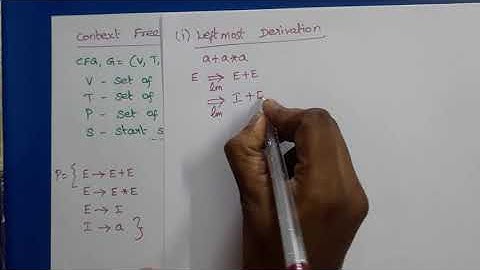 Context Free
CFG, G = (V, T,
V - set of
T - set of
P - set of
S - start s
P = { E → E+E
E → E*E
E → I
I → a }
(i) Leftmost Derivation
a+a*a
E ⇒ E+E
lm
⇒ I+E
lm